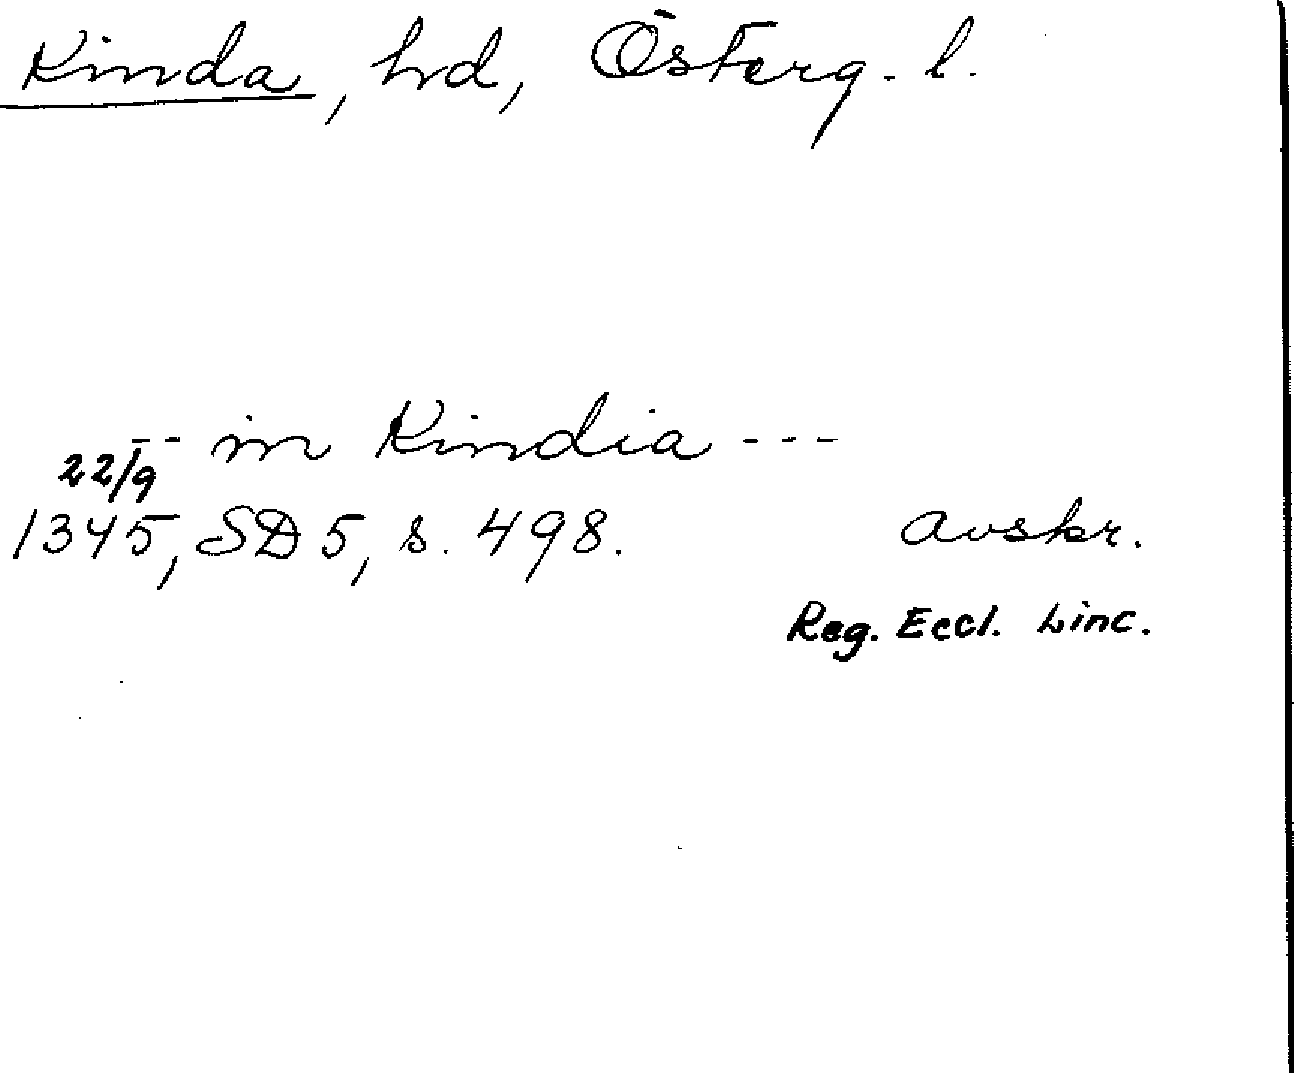 Kinda, hd, Österg. l.
--- in Kindia ---
22/9
1345, SD 5, s. 498. avskr.
Reg. Eccl. Linc.